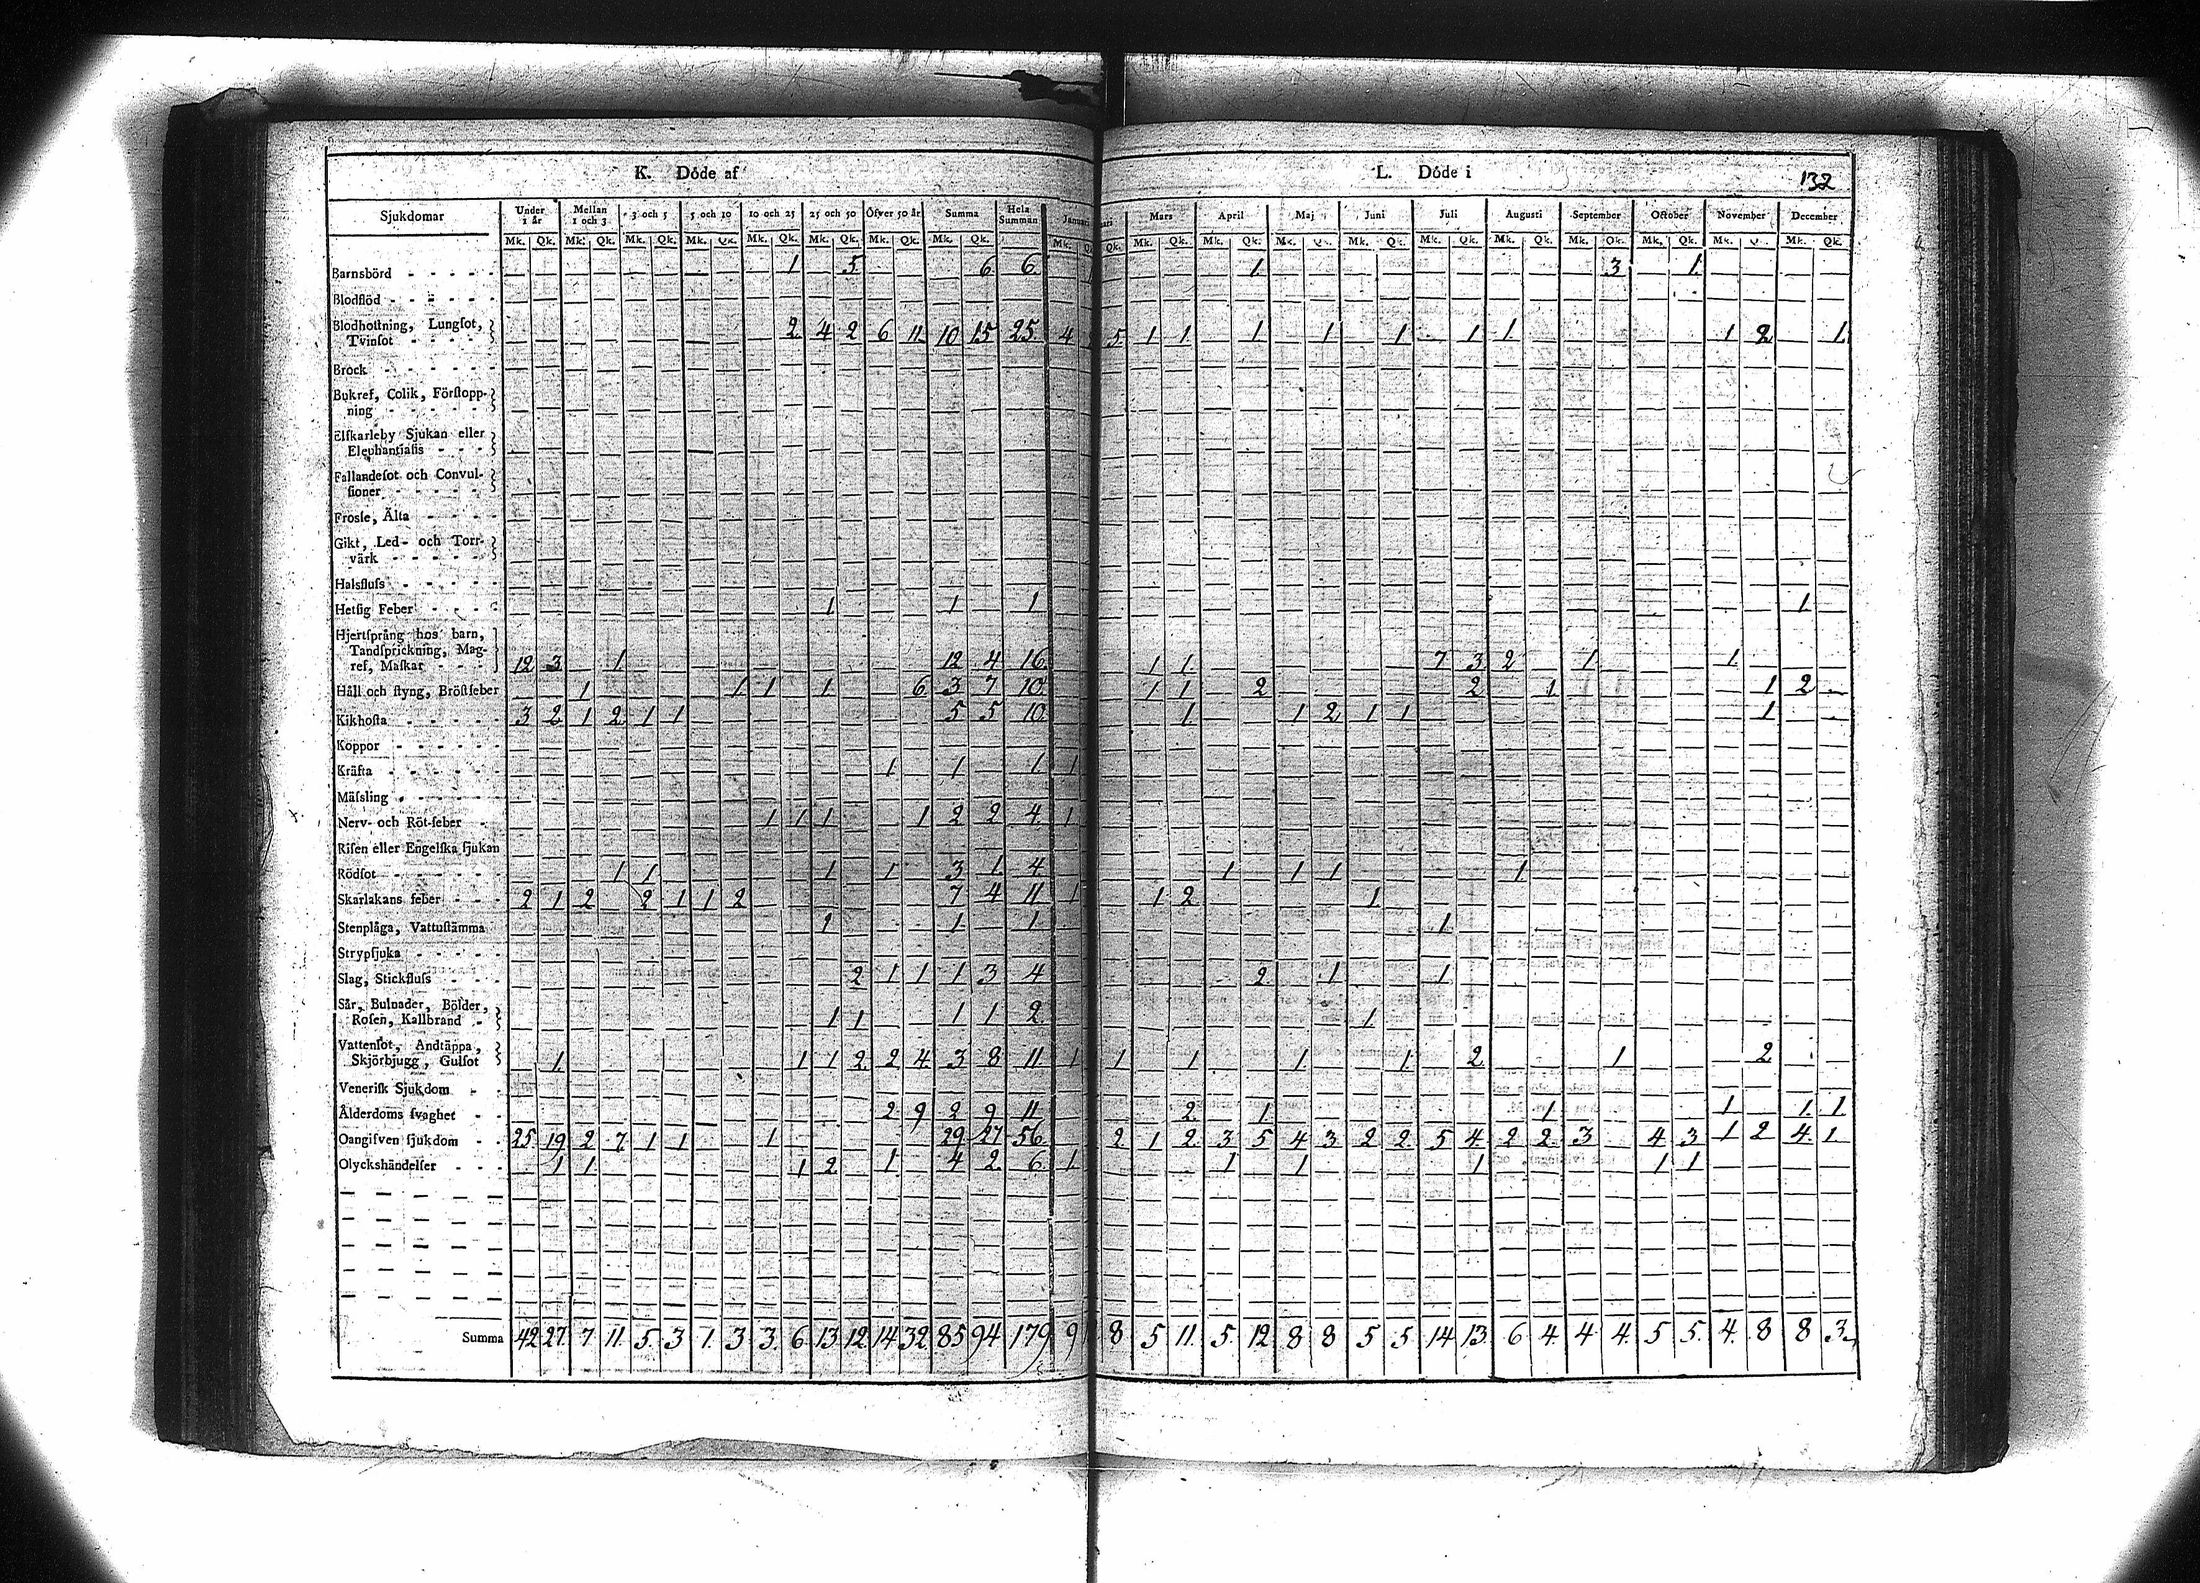 K. Döde af
L. Döde i
132
Sjukdomar Under 1 år Mellan 1 och 3 3 och 5 5 och 10 10 och 25 25 och 50 Öfver 50 år Summa Hela Summan Januari Mars April Maj Juni Juli Augusti September October November December
Mk. Qk. Mk. Qk. Mk. Qk. Mk. Qk. Mk. Qk. Mk. Qk. Mk. Qk. Mk. Qk. Mk. Qk. Mk. Qk. Mk. Qk. Mk. Qk. Mk. Qk. Mk. Qk. Mk. Qk. Mk. Qk. Mk. Qk. Mk. Qk. Mk. Qk.
Barnsbörd 1 5 6 6 1 1 3 1
Blodflöd
Blodhoſtning, Lungſot,
Tvinſot 2 4 2 6 11 10 15 25 4 5 1 1 1 1 1 1 1 1 2 1
Brock
Bukref, Colik, Förſtopp-
ning
Elſkarleby Sjukan eller
Elephantiaſis
Fallandeſot och Convul-
ſioner
Froſſe, Älta
Gikt, Led- och Torr-
värk
Halsfluſs
Hetſig Feber 1 1 1 1
Hjertſprång hos barn,
Tandſprickning, Mag-
ref, Maſkar 12 3 1 12 4 16 1 1 7 3 2 1 1
Håll och ſtyng, Bröſtfeber 1 1 1 1 6 3 7 10 1 1 2 2 1 1 2
Kikhoſta 3 2 1 2 1 1 5 5 10 1 1 2 1 1 1
Koppor
Kräfta 1 1 1 1
Mäſsling
Nerv- och Röt-feber 1 1 1 1 2 2 4 1
Riſen eller Engelſka ſjukan
Rödſot 1 1 1 1 3 1 4 1 1 1 1
Skarlakans feber 2 1 2 2 1 1 2 7 4 11 1 1 2 1
Stenplåga, Vattuſtämma 1 1 1 1
Strypſjuka
Slag, Stickfluſs 2 1 1 1 3 4 2 1 1
Sår, Bulnader, Bölder,
Roſen, Kallbrand 1 1 1 1 2 1
Vattenſot, Andtäppa,
Skjörbjugg, Gulſot 1 1 1 2 2 4 3 8 11 1 1 1 1 1 2 1 2
Veneriſk Sjukdom
Ålderdoms ſvaghet 2 9 2 9 11 2 1 1 1 1 1
Oangifven ſjukdom 25 19 2 7 1 1 1 29 27 56 2 1 2 3 5 4 3 2 2 5 4 2 2 3 4 3 1 2 4 1
Olyckshändelſer 1 1 1 2 1 4 2 6 1 1 1 1 1 1
Summa 42 27 7 11 5 3 1 3 3 6 13 12 14 32 85 94 179 9 8 5 11 5 12 8 8 5 5 14 13 6 4 4 4 5 5 4 8 8 3